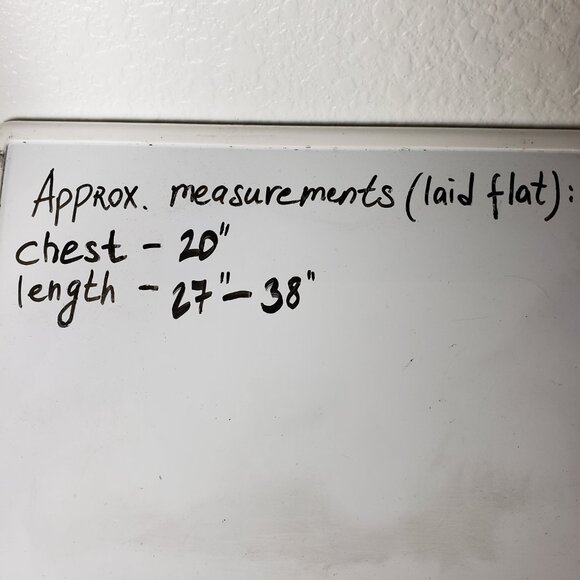 Approx. measurements (laid flat):
chest - 20"
length - 27" - 38"